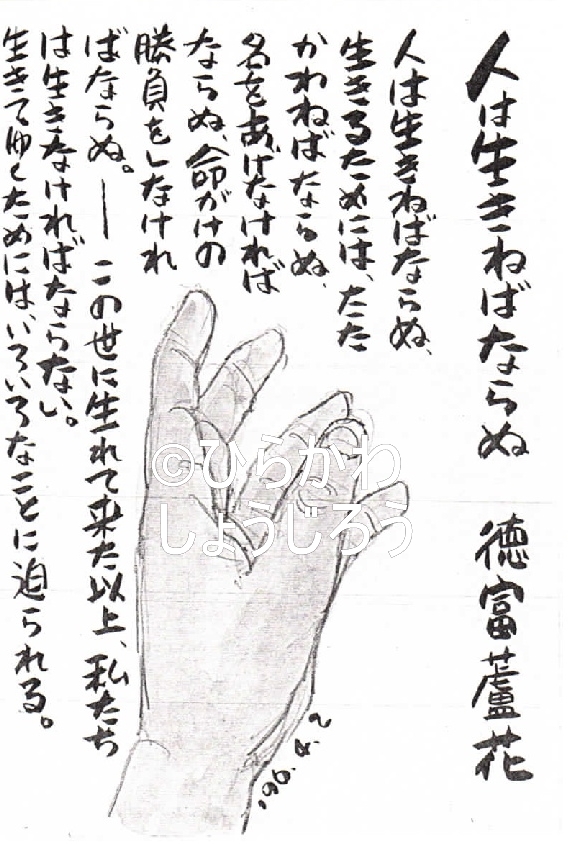 人は生きねばならぬ　徳冨蘆花
人は生きねばならぬ、
生きるためには、たた
かわねばならぬ、
名をあげなければ
ならぬ、命がけの
勝負をしなけれ
ばならぬ。― この世に生れて来た以上、私たち
は生きなければならない。
生きてゆくためには、いろいろなことに迫られる。
'96.4.2
©ひらかわ
しょうじろう